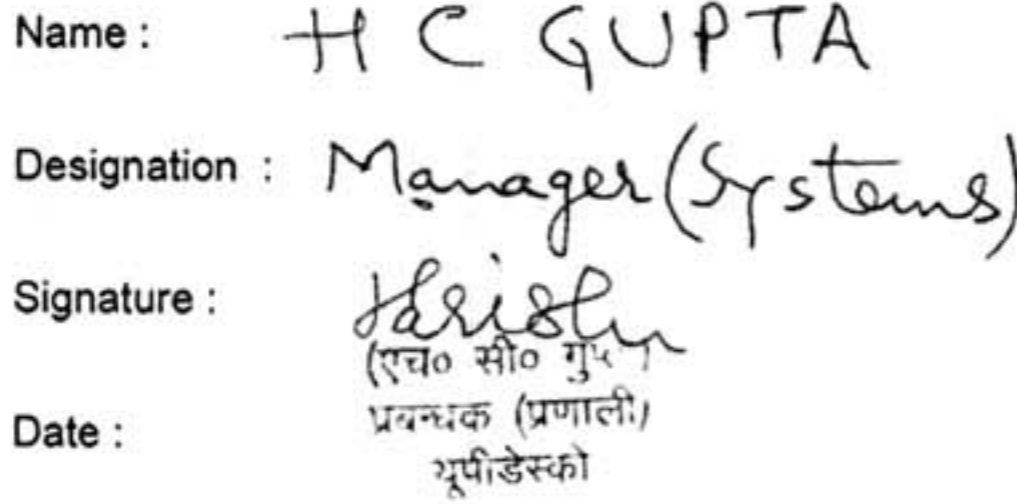 Name : H C GUPTA
Designation : Manager (Systems)
Signature : Harish
(एच० सी० गुप्
Date : प्रबन्धक (प्रणाली)
यूपीडेस्को